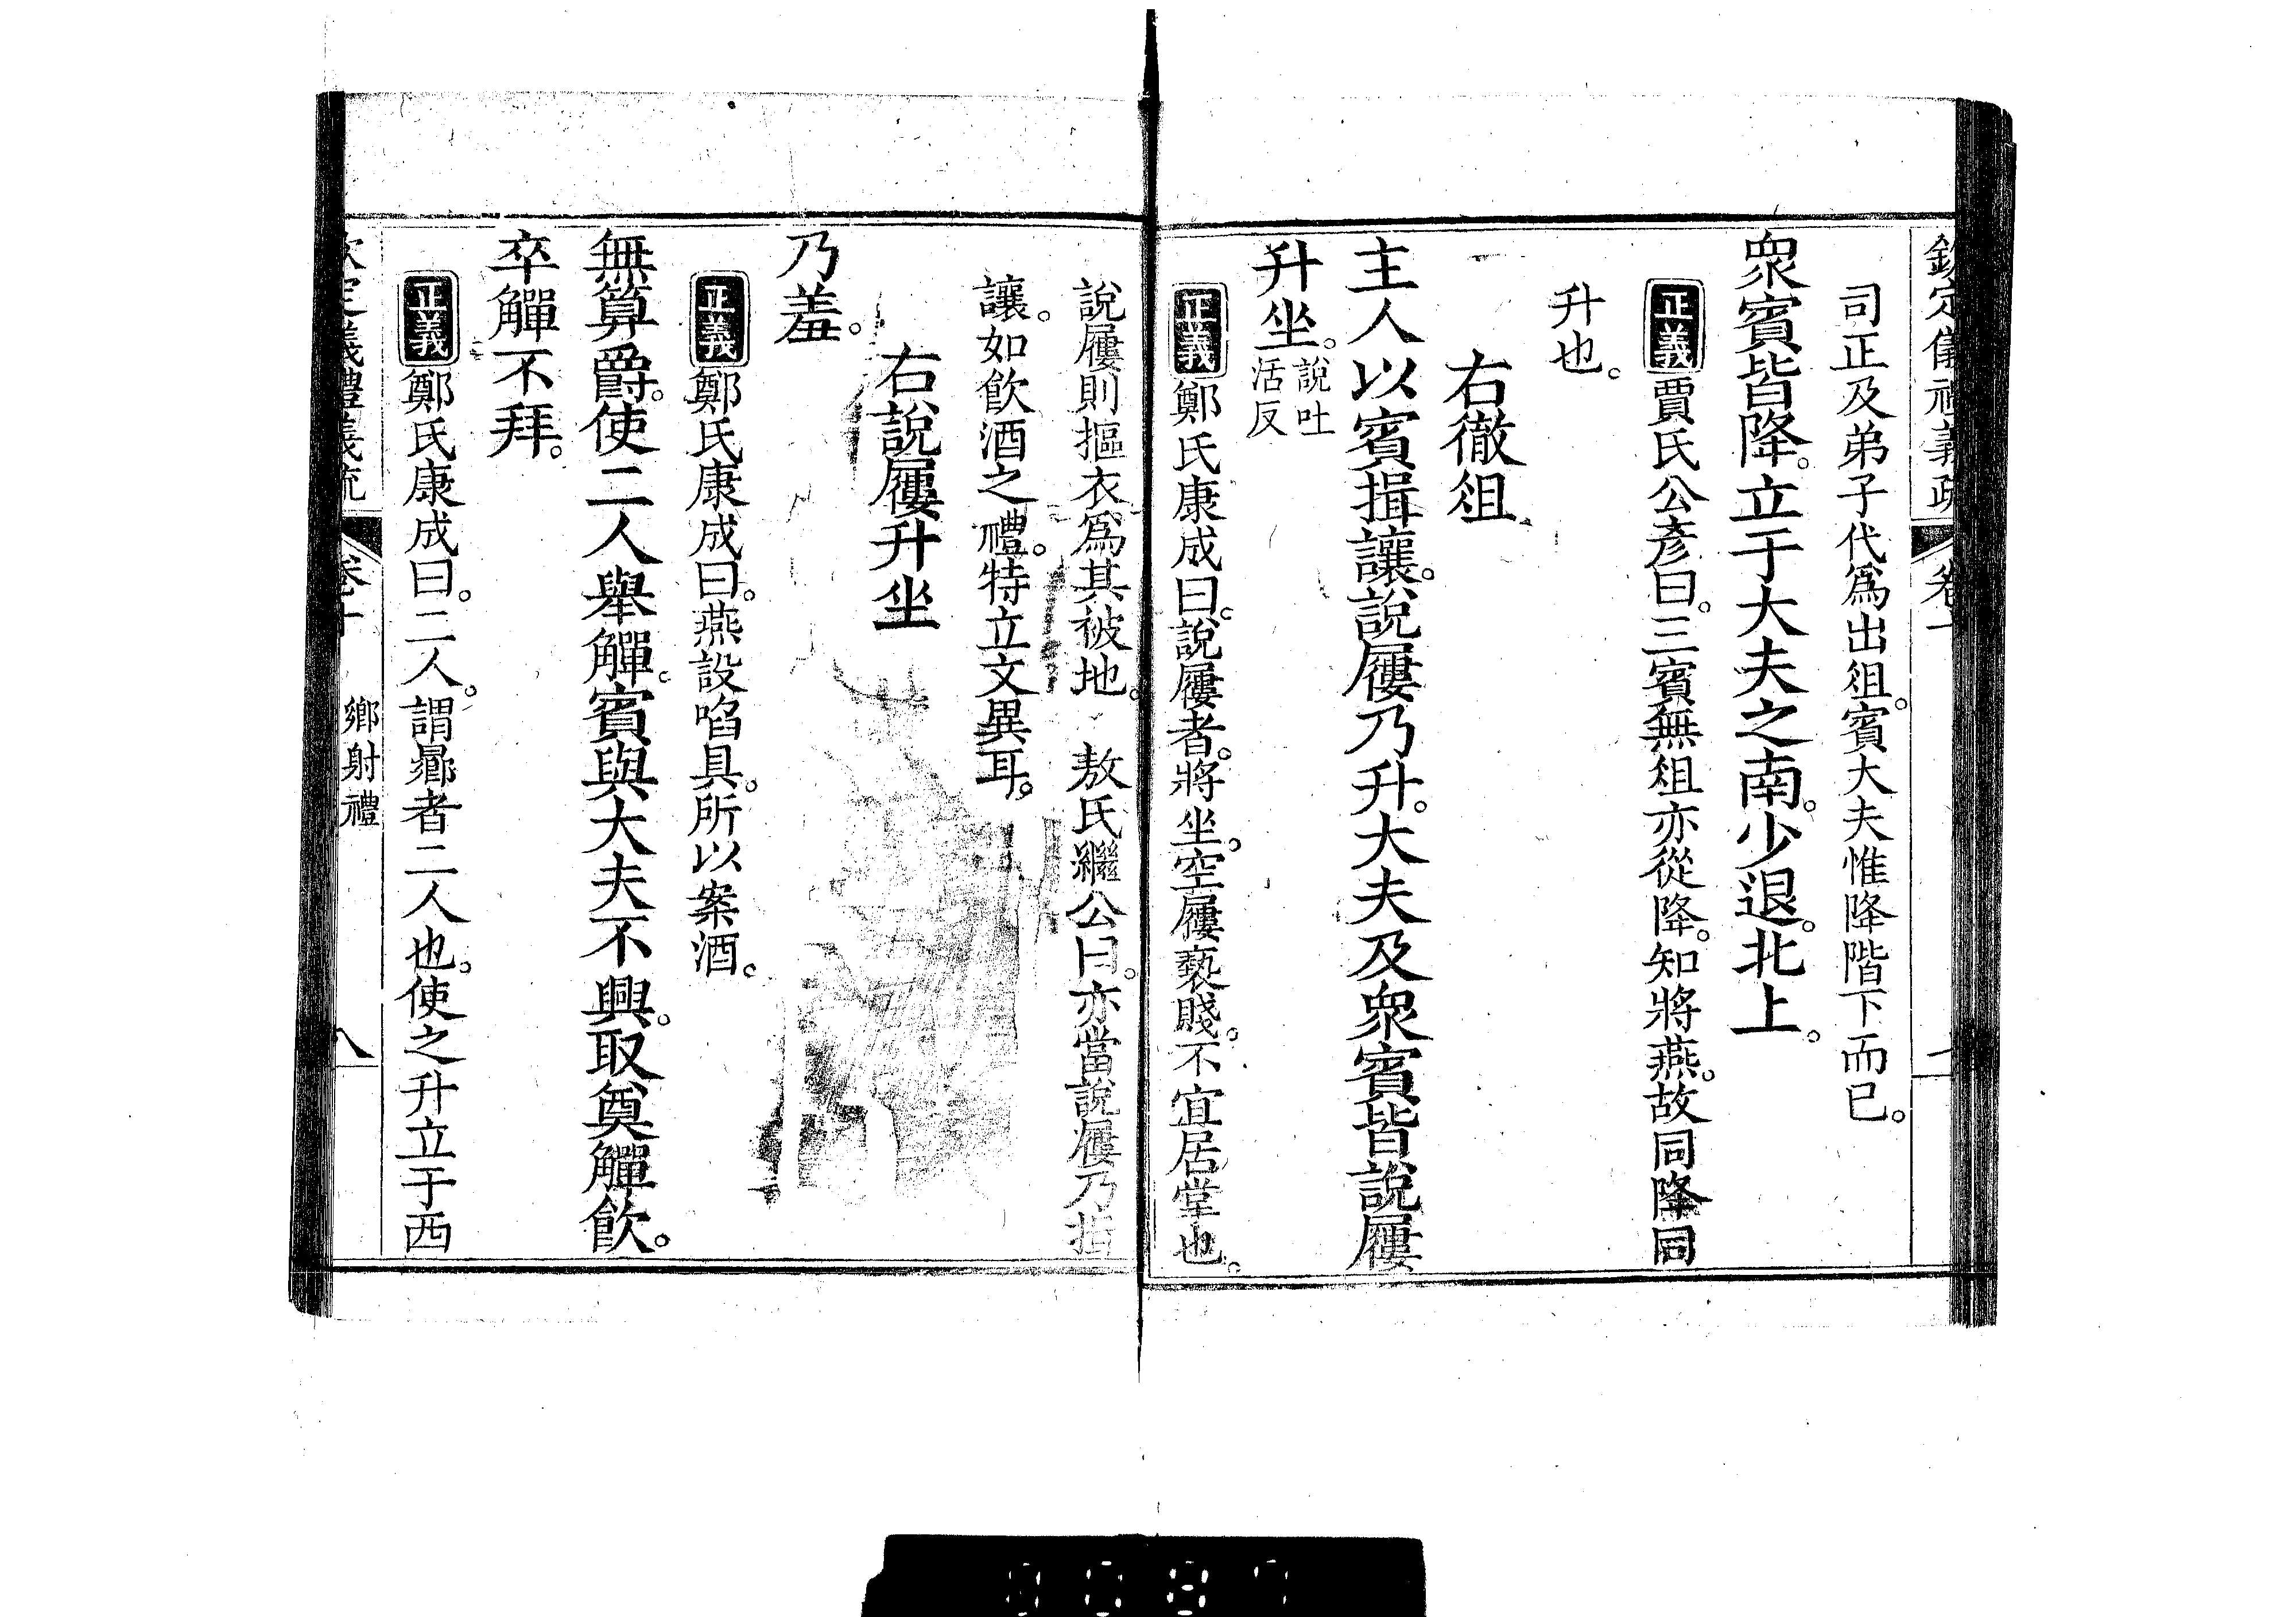 欽定儀禮義疏 卷十
司正及弟子代爲出俎。賓大夫惟降階下而已。
衆賓皆降。立于大夫之南。少退。北上。
正義 賈氏公彥曰。三賓無俎亦從降。知將燕。故同降同
升也。
右徹俎
主人以賓揖讓。說屨乃升。大夫及衆賓皆說屨
升坐。說吐活反
正義 鄭氏康成曰。說屨者。將坐。空屨褻賤。不宜居堂也。
說屨則摳衣。爲其被地。 敖氏繼公曰。亦當說屨乃揖
讓。如飲酒之禮。特立文異耳。
右說屨升坐
乃羞。
正義 鄭氏康成曰。燕設啗具。所以案酒。
無算爵。使二人舉觶。賓與大夫不興。取奠觶飲。
卒觶不拜。
正義 鄭氏康成曰。二人。謂曏者二人也。使之升立于西
欽定儀禮義疏 卷十 鄉射禮 八